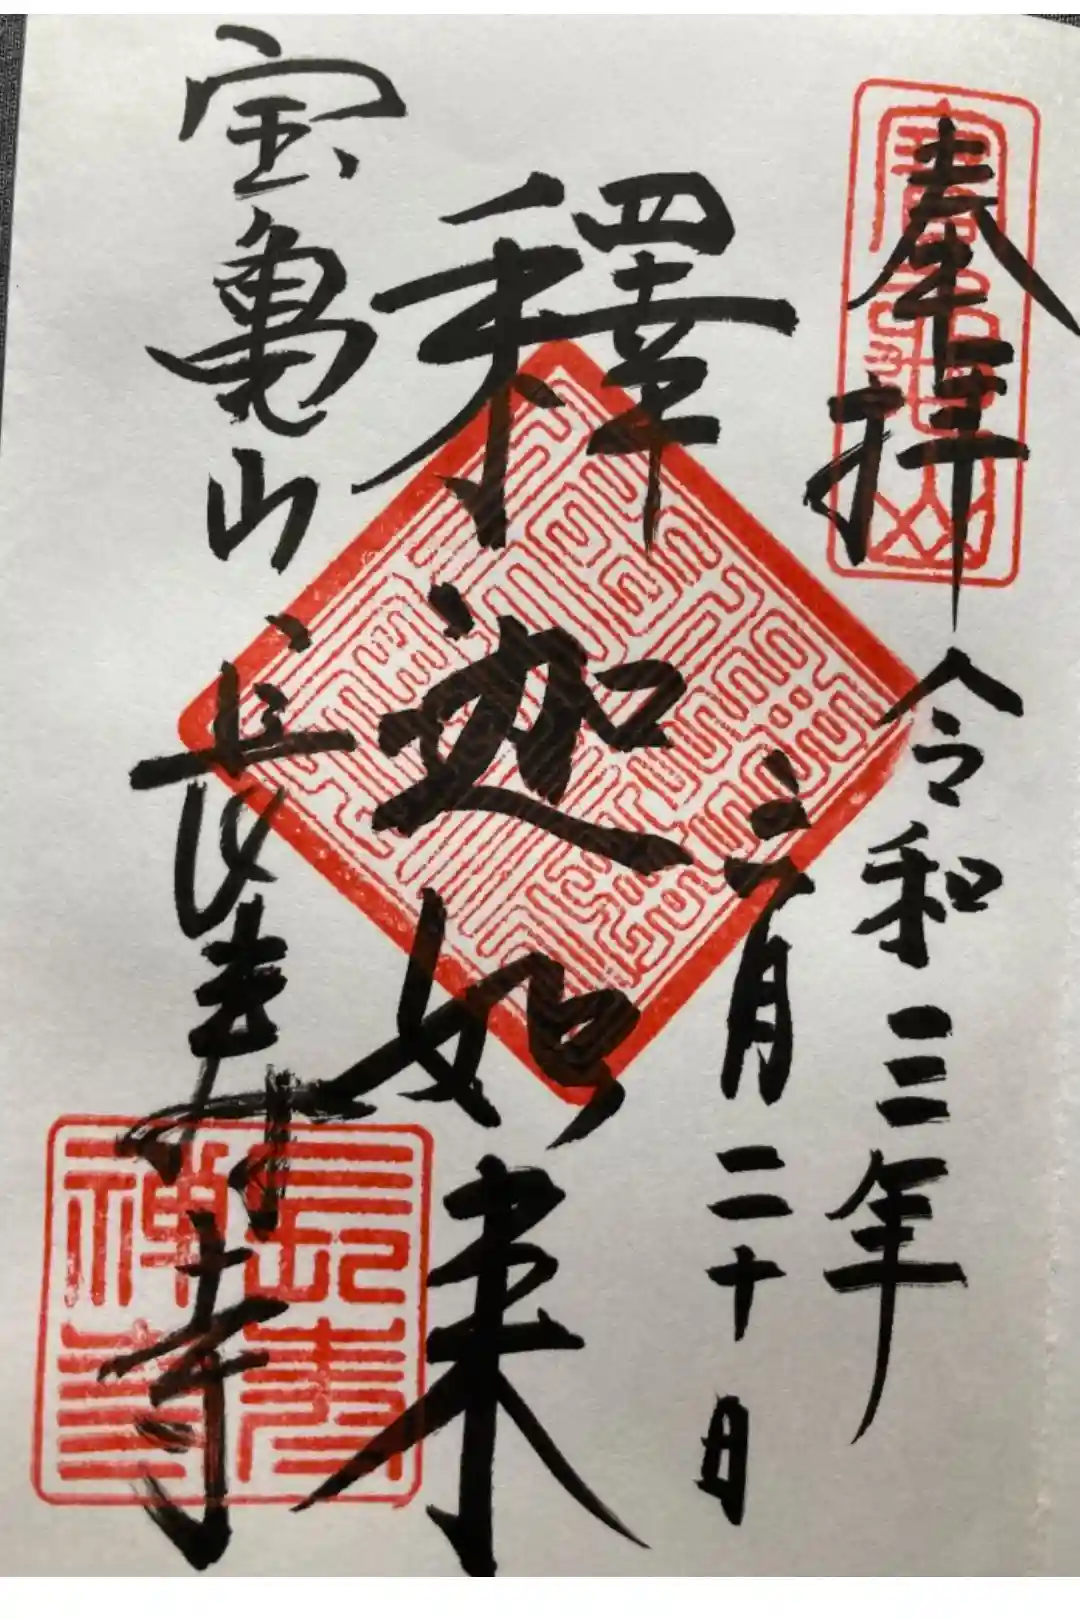 奉拝
令和三年
六月二十日
釋迦如来
宝亀山
長寿寺
長寿
禅寺